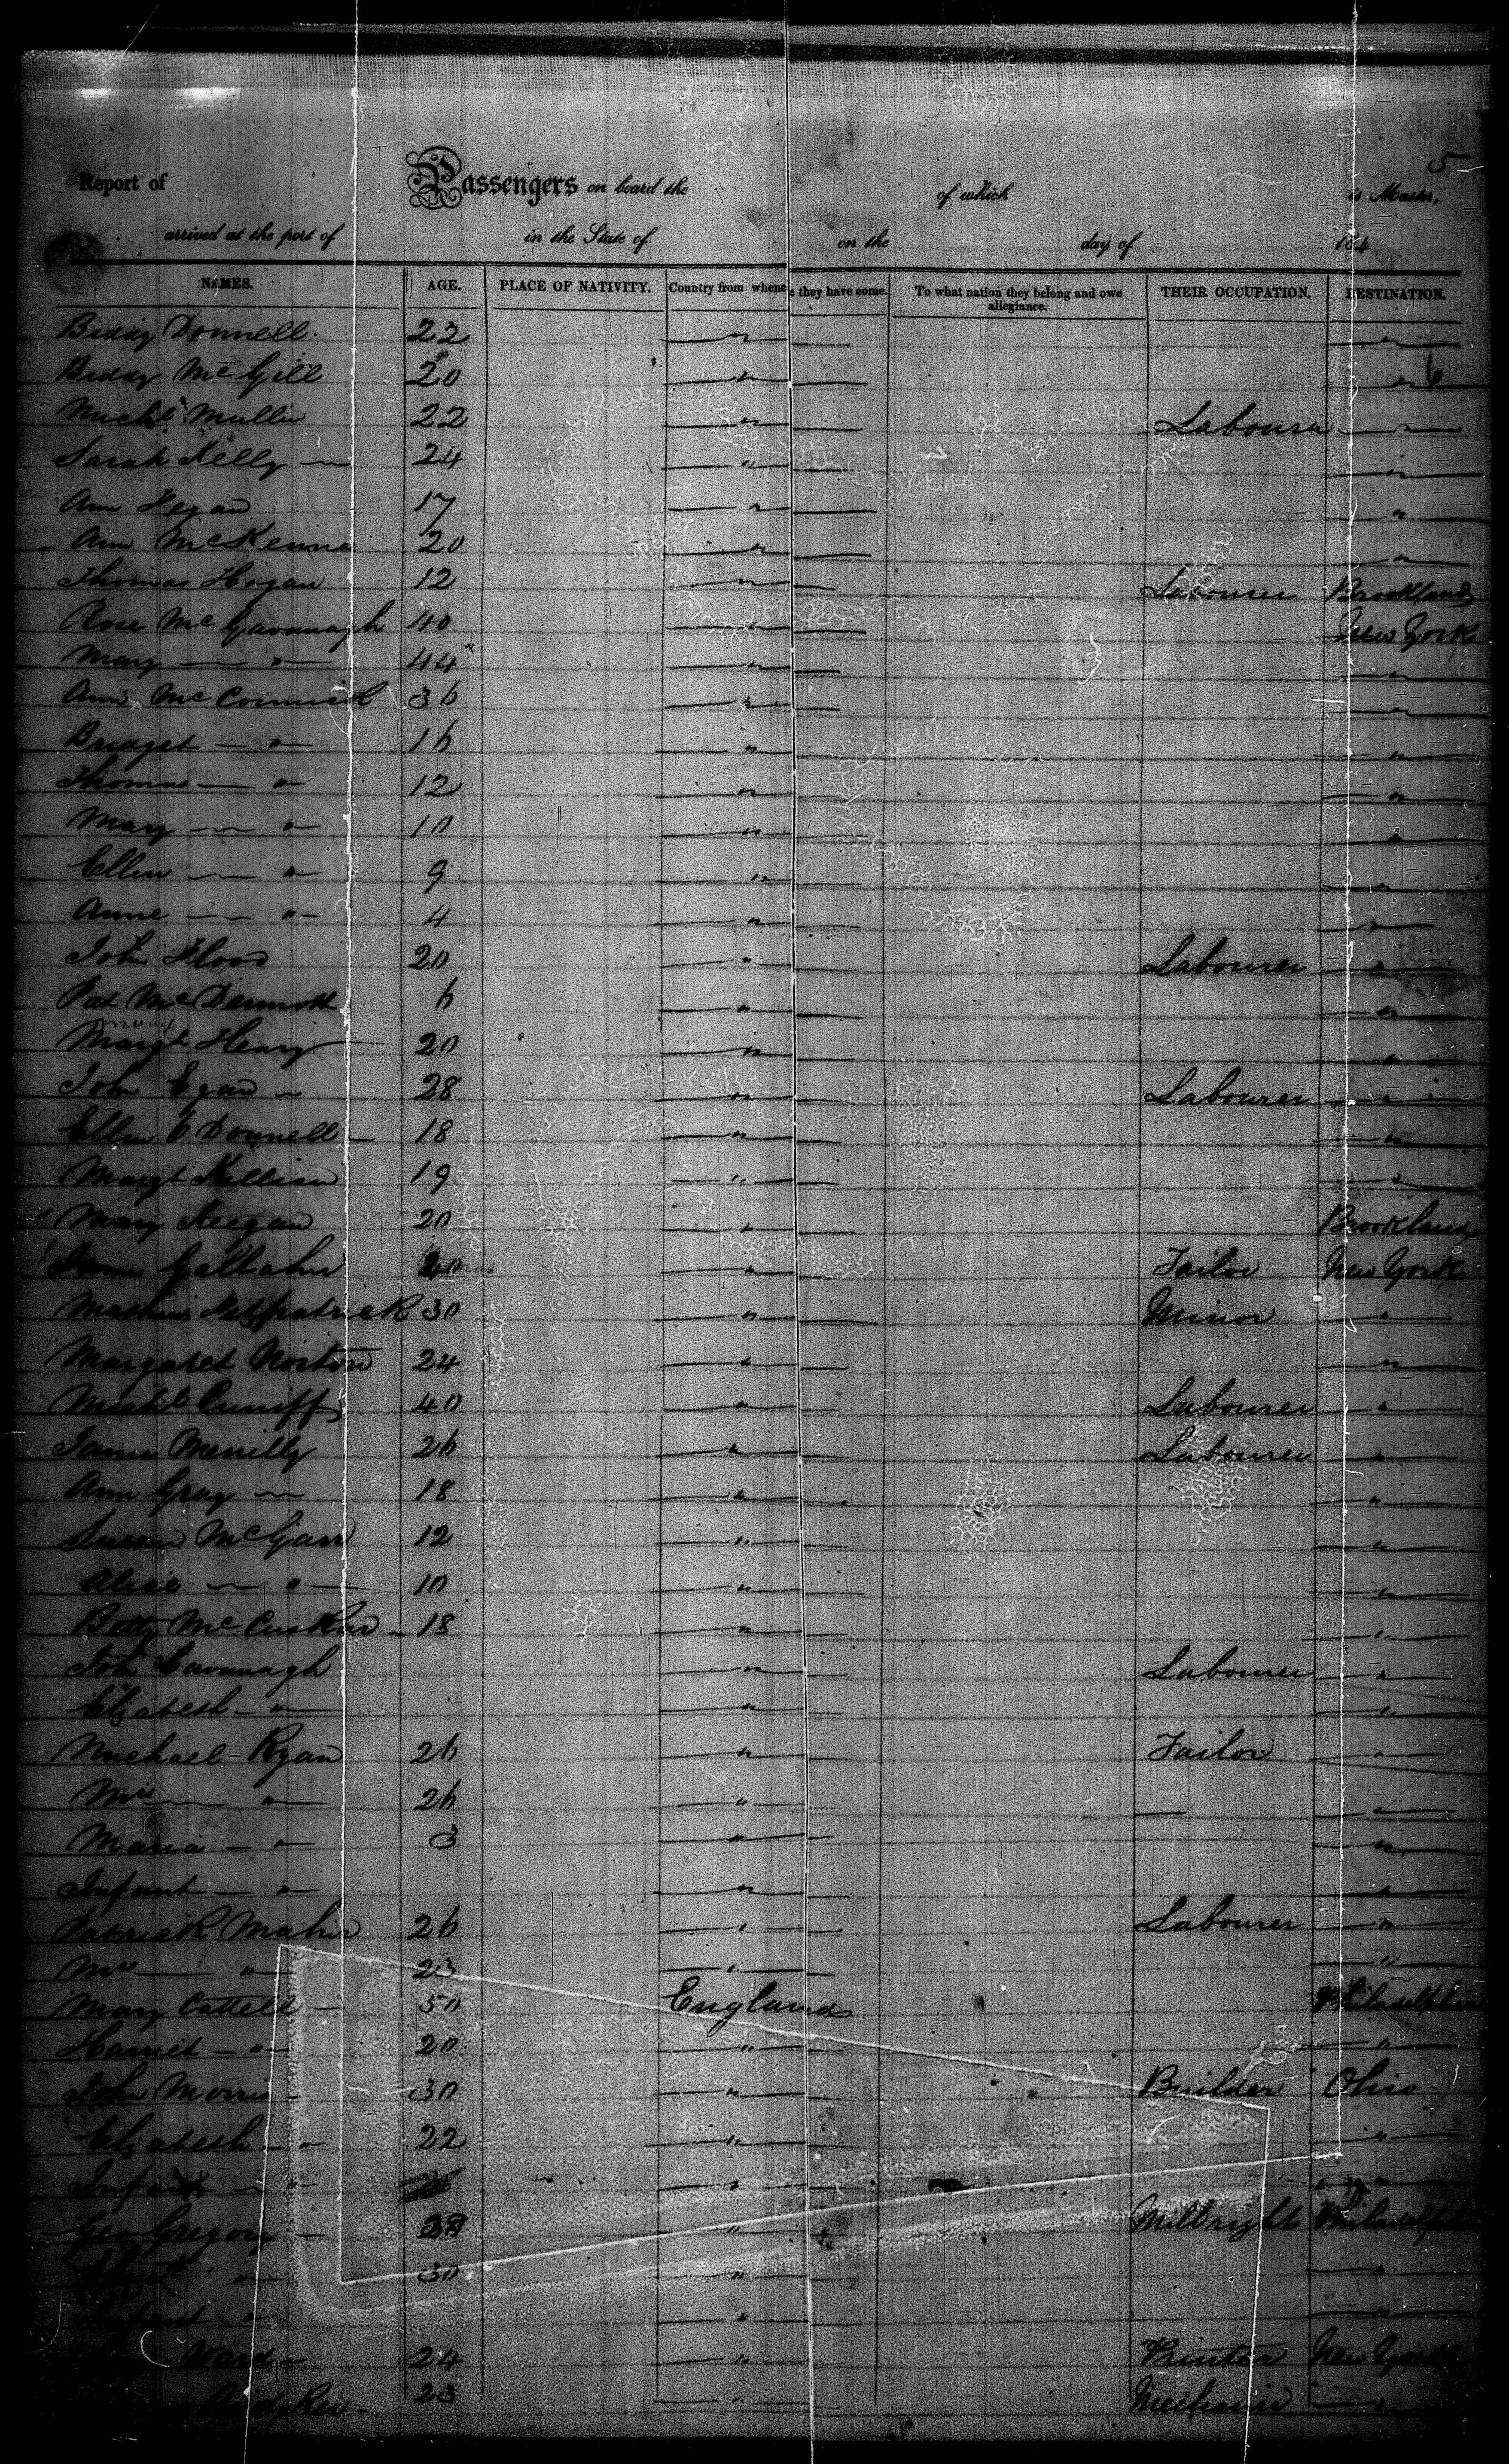 5
Report of Passengers on board the of which is Master,
arrived at the port of in the State of on the day of 184
NAMES. AGE. PLACE OF NATIVITY. Country from whence they have come. To what nation they belong and owe allegiance. THEIR OCCUPATION. DESTINATION.
Biddy Donnell. 22 " "
Biddy McGill 20 " " 6
Michl Mullin 22 " Labourer "
Sarah Kelly 24 " "
Ann Hegan 17 " "
Ann McKenna 20 " "
Thomas Hogan 12 " Labourer Brookland
Rose McGavanagh 40 " New York
Mary " 44 " "
Ann McCormick 36 " "
Bridget " 16 " "
Thomas " 12 " "
Mary " 10 " "
Ellen " 9 " "
Anne " 4 " "
John Flood 20 " Labourer "
Pat McDermott 6 " "
Margt Henry 20 " "
John Egan 28 " Labourer "
Ellen O Donnell 18 " "
Margt Killian 19 " "
Mary Keegan 20 " Brookland
Gallaher " Tailor New York
Fitzpatrick 30 " Minor "
Margaret Norton 24 " "
Michl Cuniff 40 " Labourer "
James Menilly 26 " Labourer "
Ann Gray 18 " "
Susan McGarr 12 " "
Alice " 10 " "
Betty McCusker 18 " "
Joh Cavanagh " Labourer "
Elizabeth " " "
Michael Ryan 26 " Tailor "
Mrs " 26 " "
Maria " 3 " "
Infant " " "
Patrick Maher 26 " Labourer "
Mrs " 23 " "
Mary Cattell 50 England Philadelphia
Harriet " 20 " "
John Morris 30 " Builder Ohio
Elizabeth " 22 " "
Infant " " "
Geo Gregory " Millright Philadelphia
" 30 " "
Infant " " "
Ward 24 " New York
23 " Mechanic "